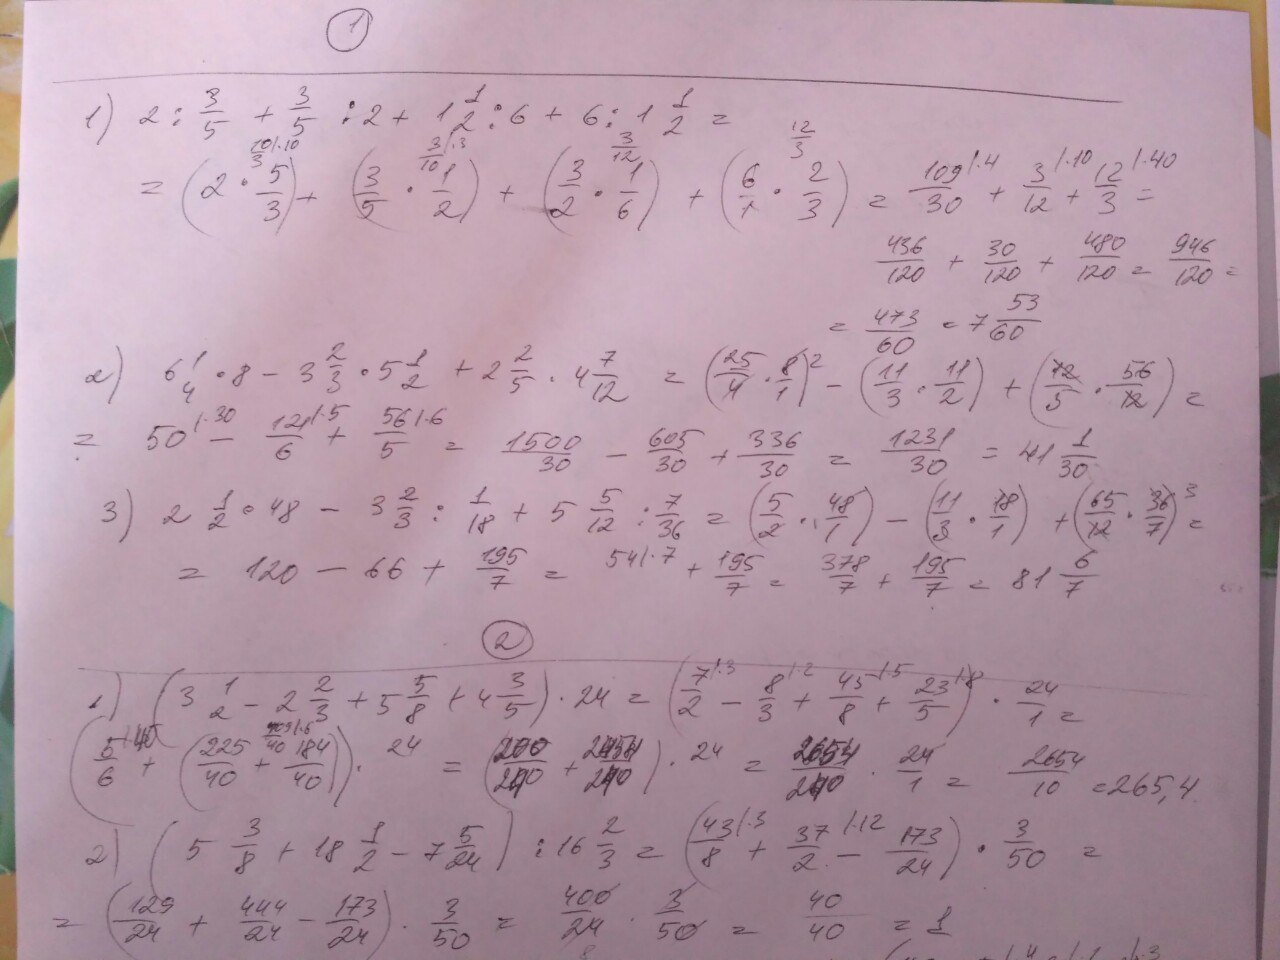 1
1) 2 : 3/5 + 3/5 : 2 + 1 1/2 : 6 + 6 : 1 1/2 =
= (2 · 5/3) 10/3|·10 + (3/5 · 1/2) 3/10|·3 + (3/2 · 1/6) 3/12 + (6/1 · 2/3) 12/3 = 109/30|·4 + 3/12|·10 + 12/3|·40 =
436/120 + 30/120 + 480/120 = 946/120 =
= 473/60 = 7 53/60
2) 6 1/4 · 8 - 3 2/3 · 5 1/2 + 2 2/5 · 4 7/12 = (25/4 · 8/1)² - (11/3 · 11/2) + (12/5 · 56/12) =
= 50|·30 - 121/6|·5 + 56/5|·6 = 1500/30 - 605/30 + 336/30 = 1231/30 = 41 1/30
3) 2 1/2 · 48 - 3 2/3 : 1/18 + 5 5/12 : 7/36 = (5/2 · 48/1) - (11/3 · 18/1) + (65/12 · 36/7)³ =
= 120 - 66 + 195/7 = 54|·7 + 195/7 = 378/7 + 195/7 = 81 6/7
2
1) (3 1/2 - 2 2/3 + 5 5/8 + 4 3/5) · 24 = (7/2|·3 - 8/3|·2 + 45/8|·5 + 23/5|·8) · 24/1 =
(5/6|·40 + (225/40 + 184/40)) 409/40|·6 · 24 = (200/240 + 2454/240) · 24 = 2654/240 · 24/1 = 2654/10 = 265,4
2) (5 3/8 + 18 1/2 - 7 5/24) : 16 2/3 = (43/8|·3 + 37/2|·12 - 173/24) · 3/50 =
= (129/24 + 444/24 - 173/24) · 3/50 = 400/24 · 3/50 = 40/40 = 1